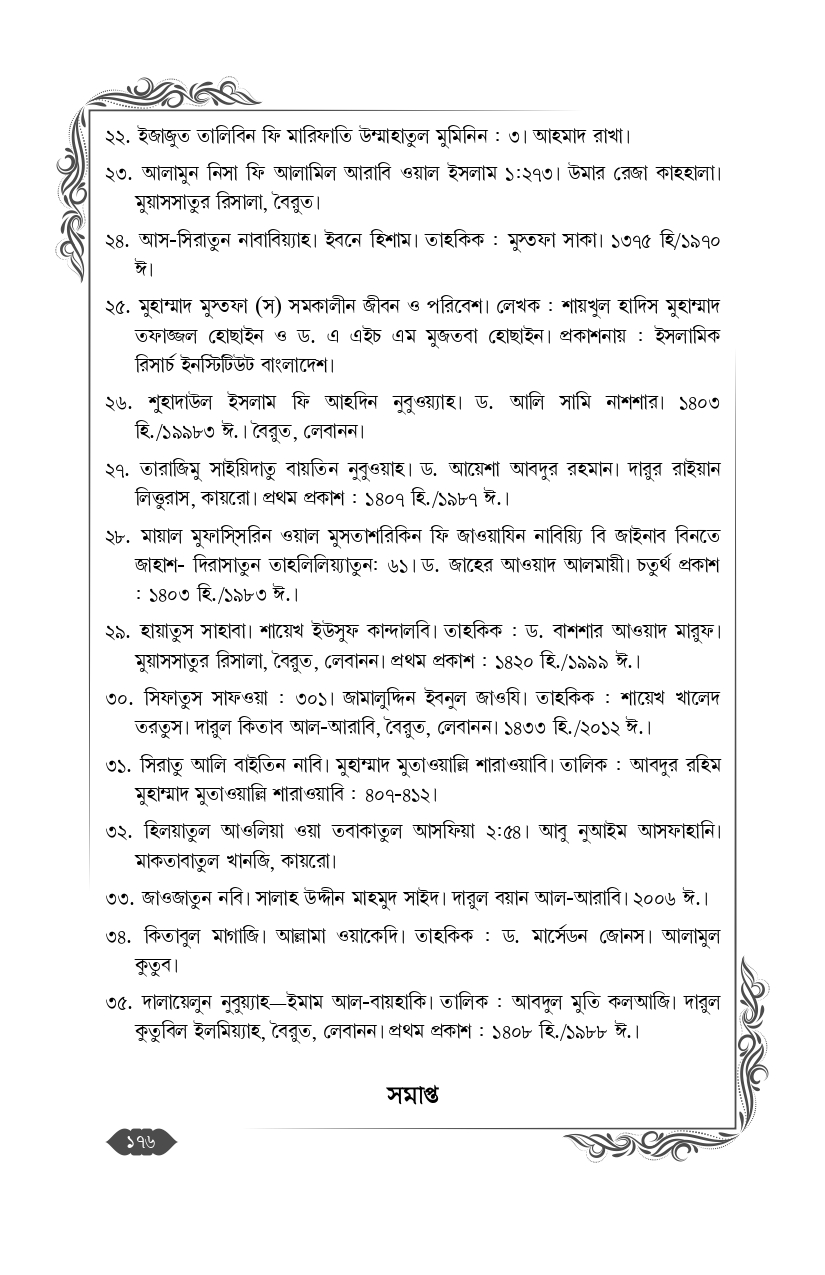 ২২. ইজাজুত তালিবিন ফি মারিফাতি উম্মাহাতুল মুমিনিন : ৩। আহমাদ রাখা।
২৩. আলামুন নিসা ফি আলামিল আরাবি ওয়াল ইসলাম ১:২৭৩। উমার রেজা কাহহালা।
মুয়াসসাতুর রিসালা, বৈরুত।
২৪. আস-সিরাতুন নাবাবিয়্যাহ। ইবনে হিশাম। তাহকিক : মুস্তফা সাকা। ১৩৭৫ হি/১৯৭০
ঈ।
২৫. মুহাম্মাদ মুস্তফা (স) সমকালীন জীবন ও পরিবেশ। লেখক : শায়খুল হাদিস মুহাম্মাদ
তফাজ্জল হোছাইন ও ড. এ এইচ এম মুজতবা হোছাইন। প্রকাশনায় : ইসলামিক
রিসার্চ ইনস্টিটিউট বাংলাদেশ।
২৬. শুহাদাউল ইসলাম ফি আহদিন নুবুওয়্যাহ। ড. আলি সামি নাশশার। ১৪০৩
হি./১৯৯৮৩ ঈ.। বৈরুত, লেবানন।
২৭. তারাজিমু সাইয়িদাতু বায়তিন নুবুওয়াহ। ড. আয়েশা আবদুর রহমান। দারুর রাইয়ান
লিত্তুরাস, কায়রো। প্রথম প্রকাশ : ১৪০৭ হি./১৯৮৭ ঈ.।
২৮. মায়াল মুফাস্সিরিন ওয়াল মুসতাশরিকিন ফি জাওয়াযিন নাবিয়্যি বি জাইনাব বিনতে
জাহাশ- দিরাসাতুন তাহলিলিয়্যাতুন: ৬১। ড. জাহের আওয়াদ আলমায়ী। চতুর্থ প্রকাশ
: ১৪০৩ হি./১৯৮৩ ঈ.।
২৯. হায়াতুস সাহাবা। শায়েখ ইউসুফ কান্দালবি। তাহকিক : ড. বাশশার আওয়াদ মারুফ।
মুয়াসসাতুর রিসালা, বৈরুত, লেবানন। প্রথম প্রকাশ : ১৪২০ হি./১৯৯৯ ঈ.।
৩০. সিফাতুস সাফওয়া : ৩০১। জামালুদ্দিন ইবনুল জাওযি। তাহকিক : শায়েখ খালেদ
তরতুস। দারুল কিতাব আল-আরাবি, বৈরুত, লেবানন। ১৪৩৩ হি./২০১২ ঈ.।
৩১. সিরাতু আলি বাইতিন নাবি। মুহাম্মাদ মুতাওয়াল্লি শারাওয়াবি। তালিক : আবদুর রহিম
মুহাম্মাদ মুতাওয়াল্লি শারাওয়াবি : ৪০৭-৪১২।
৩২. হিলয়াতুল আওলিয়া ওয়া তবাকাতুল আসফিয়া ২:৫৪। আবু নুআইম আসফাহানি।
মাকতাবাতুল খানজি, কায়রো।
৩৩. জাওজাতুন নবি। সালাহ উদ্দীন মাহমুদ সাইদ। দারুল বয়ান আল-আরাবি। ২০০৬ ঈ.।
৩৪. কিতাবুল মাগাজি। আল্লামা ওয়াকেদি। তাহকিক : ড. মার্সেডন জোনস। আলামুল
কুতুব।
৩৫. দালায়েলুন নুবুয়্যাহ—ইমাম আল-বায়হাকি। তালিক : আবদুল মুতি কলআজি। দারুল
কুতুবিল ইলমিয়্যাহ, বৈরুত, লেবানন। প্রথম প্রকাশ : ১৪০৮ হি./১৯৮৮ ঈ.।
সমাপ্ত
১৭৬